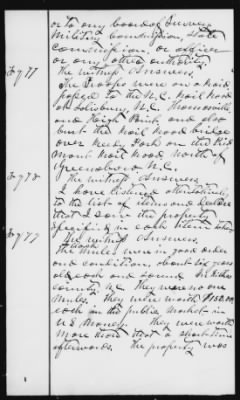 or to any board of Survey
Military Commission, State
Commission, or officer
or any other authority.
Int 77 The witness answers,
The Troops were on a raid
to the N.C. Rail Road
at Salisbury, N.C. Thomasville
and High Point, and also
but the Rail Road bridge
over Reedy Fork on the Pied
mont Rail Road North of
Greensboro N.C.
Int 78 The witness answers,
I have listened attentively
to the list of items and
that I saw the property
specified in each item taken
Int 79 The witness answers
The Mules were in good order
and condition, about six years
old each and sound
county N.C. They were no one
mules. They were worth $150.00
each in the public market in
U.S. Money. They were worth
more than that a short time
afterwards. The property was